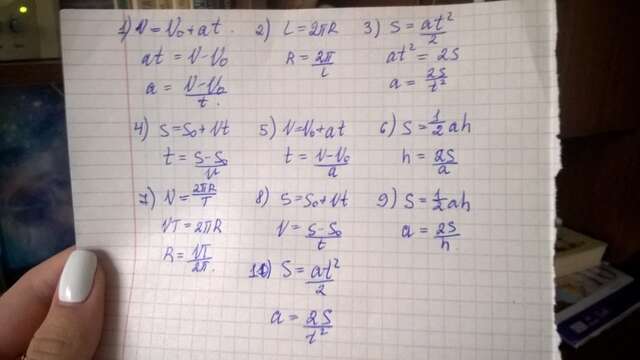 1) v = v₀ + at
at = v - v₀
a = (v - v₀)/t
2) L = 2πR
R = 2π/L
3) S = at²/2
at² = 2S
a = 2S/t²
4) S = S₀ + vt
t = (S - S₀)/v
5) v = v₀ + at
t = (v - v₀)/a
6) S = 1/2 ah
h = 2S/a
7) v = 2πR/T
vT = 2πR
R = vT/2π
8) S = S₀ + vt
v = (S - S₀)/t
9) S = 1/2 ah
a = 2S/h
10) S = at²/2
a = 2S/t²